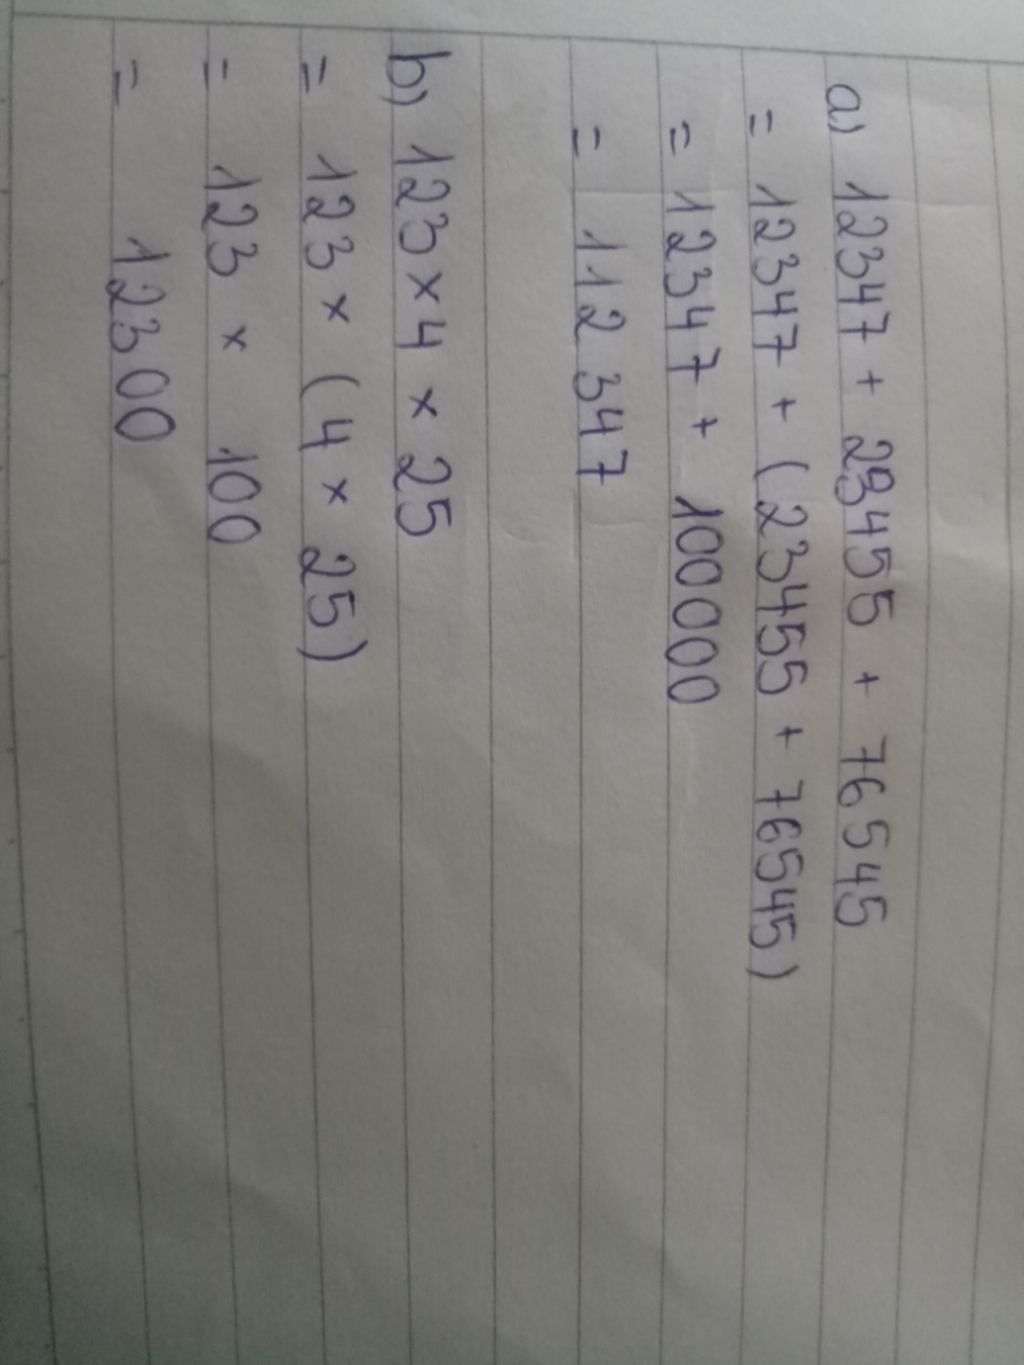 a) 12347 + 23455 + 76545
= 12347 + (23455 + 76545)
= 12347 + 100000
= 112 347
b) 123 × 4 × 25
= 123 × (4 × 25)
= 123 × 100
= 12300